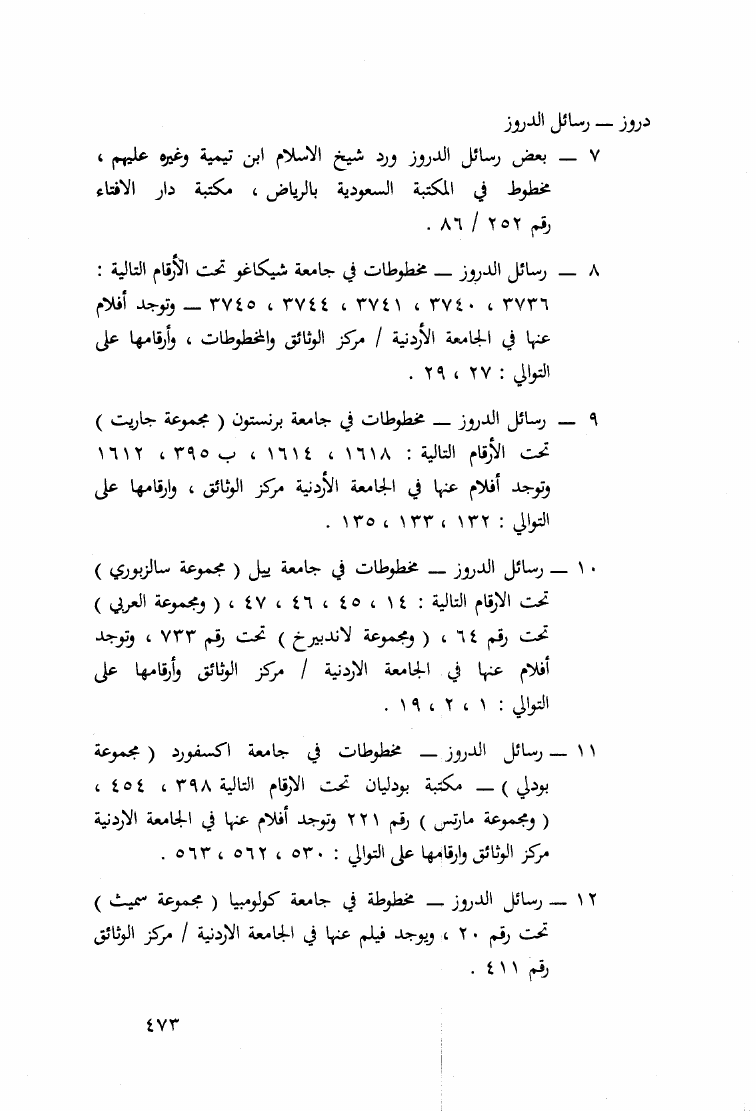 دروز — رسائل الدروز
٧ — بعض رسائل الدروز ورد شيخ الاسلام ابن تيمية وغيره عليهم ،
مخطوط في المكتبة السعودية بالرياض ، مكتبة دار الافتاء
رقم ٢٥٢ / ٨٦ .
٨ — رسائل الدروز — مخطوطات في جامعة شيكاغو تحت الأرقام التالية :
٣٧٣٦ ، ٣٧٤٠ ، ٣٧٤١ ، ٣٧٤٤ ، ٣٧٤٥ — وتوجد أفلام
عنها في الجامعة الأردنية / مركز الوثائق والمخطوطات ، وأرقامها على
التوالي : ٢٧ ، ٢٩ .
٩ — رسائل الدروز — مخطوطات في جامعة برنستون ( مجموعة جاريت )
تحت الأرقام التالية : ١٦١٨ ، ١٦١٤ ، ب ٣٩٥ ، ١٦١٢
وتوجد أفلام عنها في الجامعة الأردنية مركز الوثائق ، وارقامها على
التوالي : ١٣٢ ، ١٣٣ ، ١٣٥ .
١٠ — رسائل الدروز — مخطوطات في جامعة ييل ( مجموعة سالزبوري )
تحت الارقام التالية : ١٤ ، ٤٥ ، ٤٦ ، ٤٧ ، ( ومجموعة العربي )
تحت رقم ٦٤ ، ( ومجموعة لاندبيرخ ) تحت رقم ٧٣٣ ، وتوجد
أفلام عنها في الجامعة الاردنية / مركز الوثائق وأرقامها على
التوالي : ١ ، ٢ ، ١٩ .
١١ — رسائل الدروز — مخطوطات في جامعة اكسفورد ( مجموعة
بودلي ) — مكتبة بودليان تحت الارقام التالية ٣٩٨ ، ٤٥٤ ،
( ومجموعة مارتس ) رقم ٢٢١ وتوجد أفلام عنها في الجامعة الاردنية
مركز الوثائق وارقامها على التوالي : ٥٣٠ ، ٥٦٢ ، ٥٦٣ .
١٢ — رسائل الدروز — مخطوطة في جامعة كولومبيا ( مجموعة سميث )
تحت رقم ٢٠ ، ويوجد فيلم عنها في الجامعة الاردنية / مركز الوثائق
رقم ٤١١ .
٤٧٣